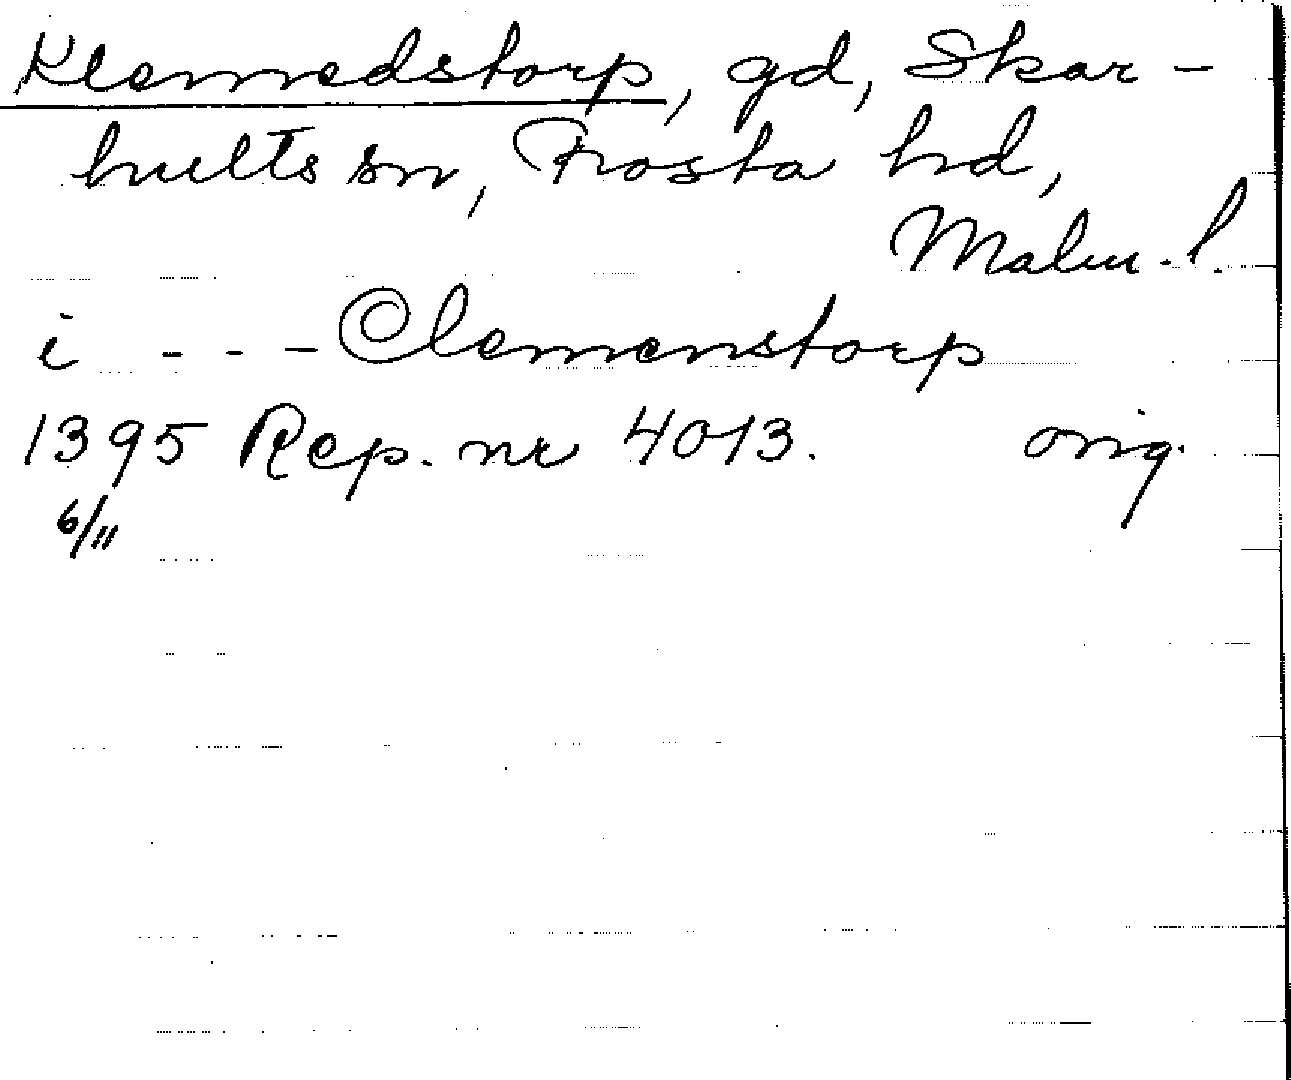 Klemedstorp, gd, Skar-
hults sn, Frosta hd,
Malm. l.
i - - - Clemenstorp
1395 Rep. nr 4013. orig.
6/11